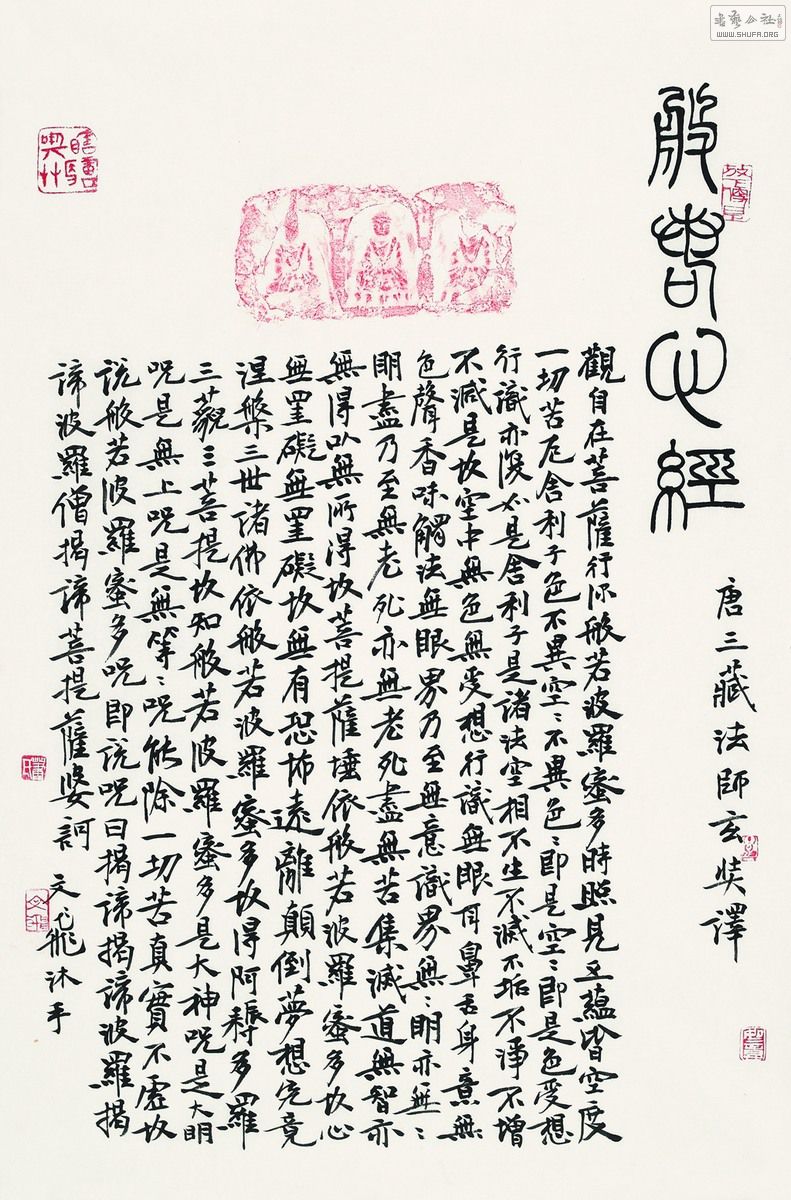 書藝公社
WWW.SHUFA.ORG
般若心經
唐三藏法師玄奘譯
觀自在菩薩行深般若波羅蜜多時照見五蘊皆空度
一切苦厄舍利子色不異空〻不異色〻即是空〻即是色受想
行識亦復如是舍利子是諸法空相不生不滅不垢不淨不增
不減是故空中無色無受想行識無眼耳鼻舌身意無
色聲香味觸法無眼界乃至無意識界無〻明亦無〻
明盡乃至無老死亦無老死盡無苦集滅道無智亦
無得以無所得故菩提薩埵依般若波羅蜜多故心
無罣礙無罣礙故無有恐怖遠離顛倒夢想究竟
涅槃三世諸佛依般若波羅蜜多故得阿耨多羅
三藐三菩提故知般若波羅蜜多是大神呪是大明
呪是無上呪是無等〻呪能除一切苦真實不虛故
說般若波羅蜜多呪即說呪曰揭諦揭諦波羅揭
諦波羅僧揭諦菩提薩婆訶 文 沐手